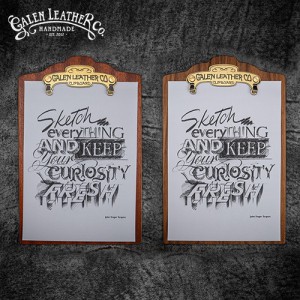 GALEN LEATHER CO.
HANDMADE
EST. 2012
GALEN LEATHER CO.
Sketch
everyTHING
AND KEEP
Your
CURIOSITY
FRESH
GALEN LEATHER CO.
Sketch
everyTHING
AND KEEP
Your
CURIOSITY
FRESH